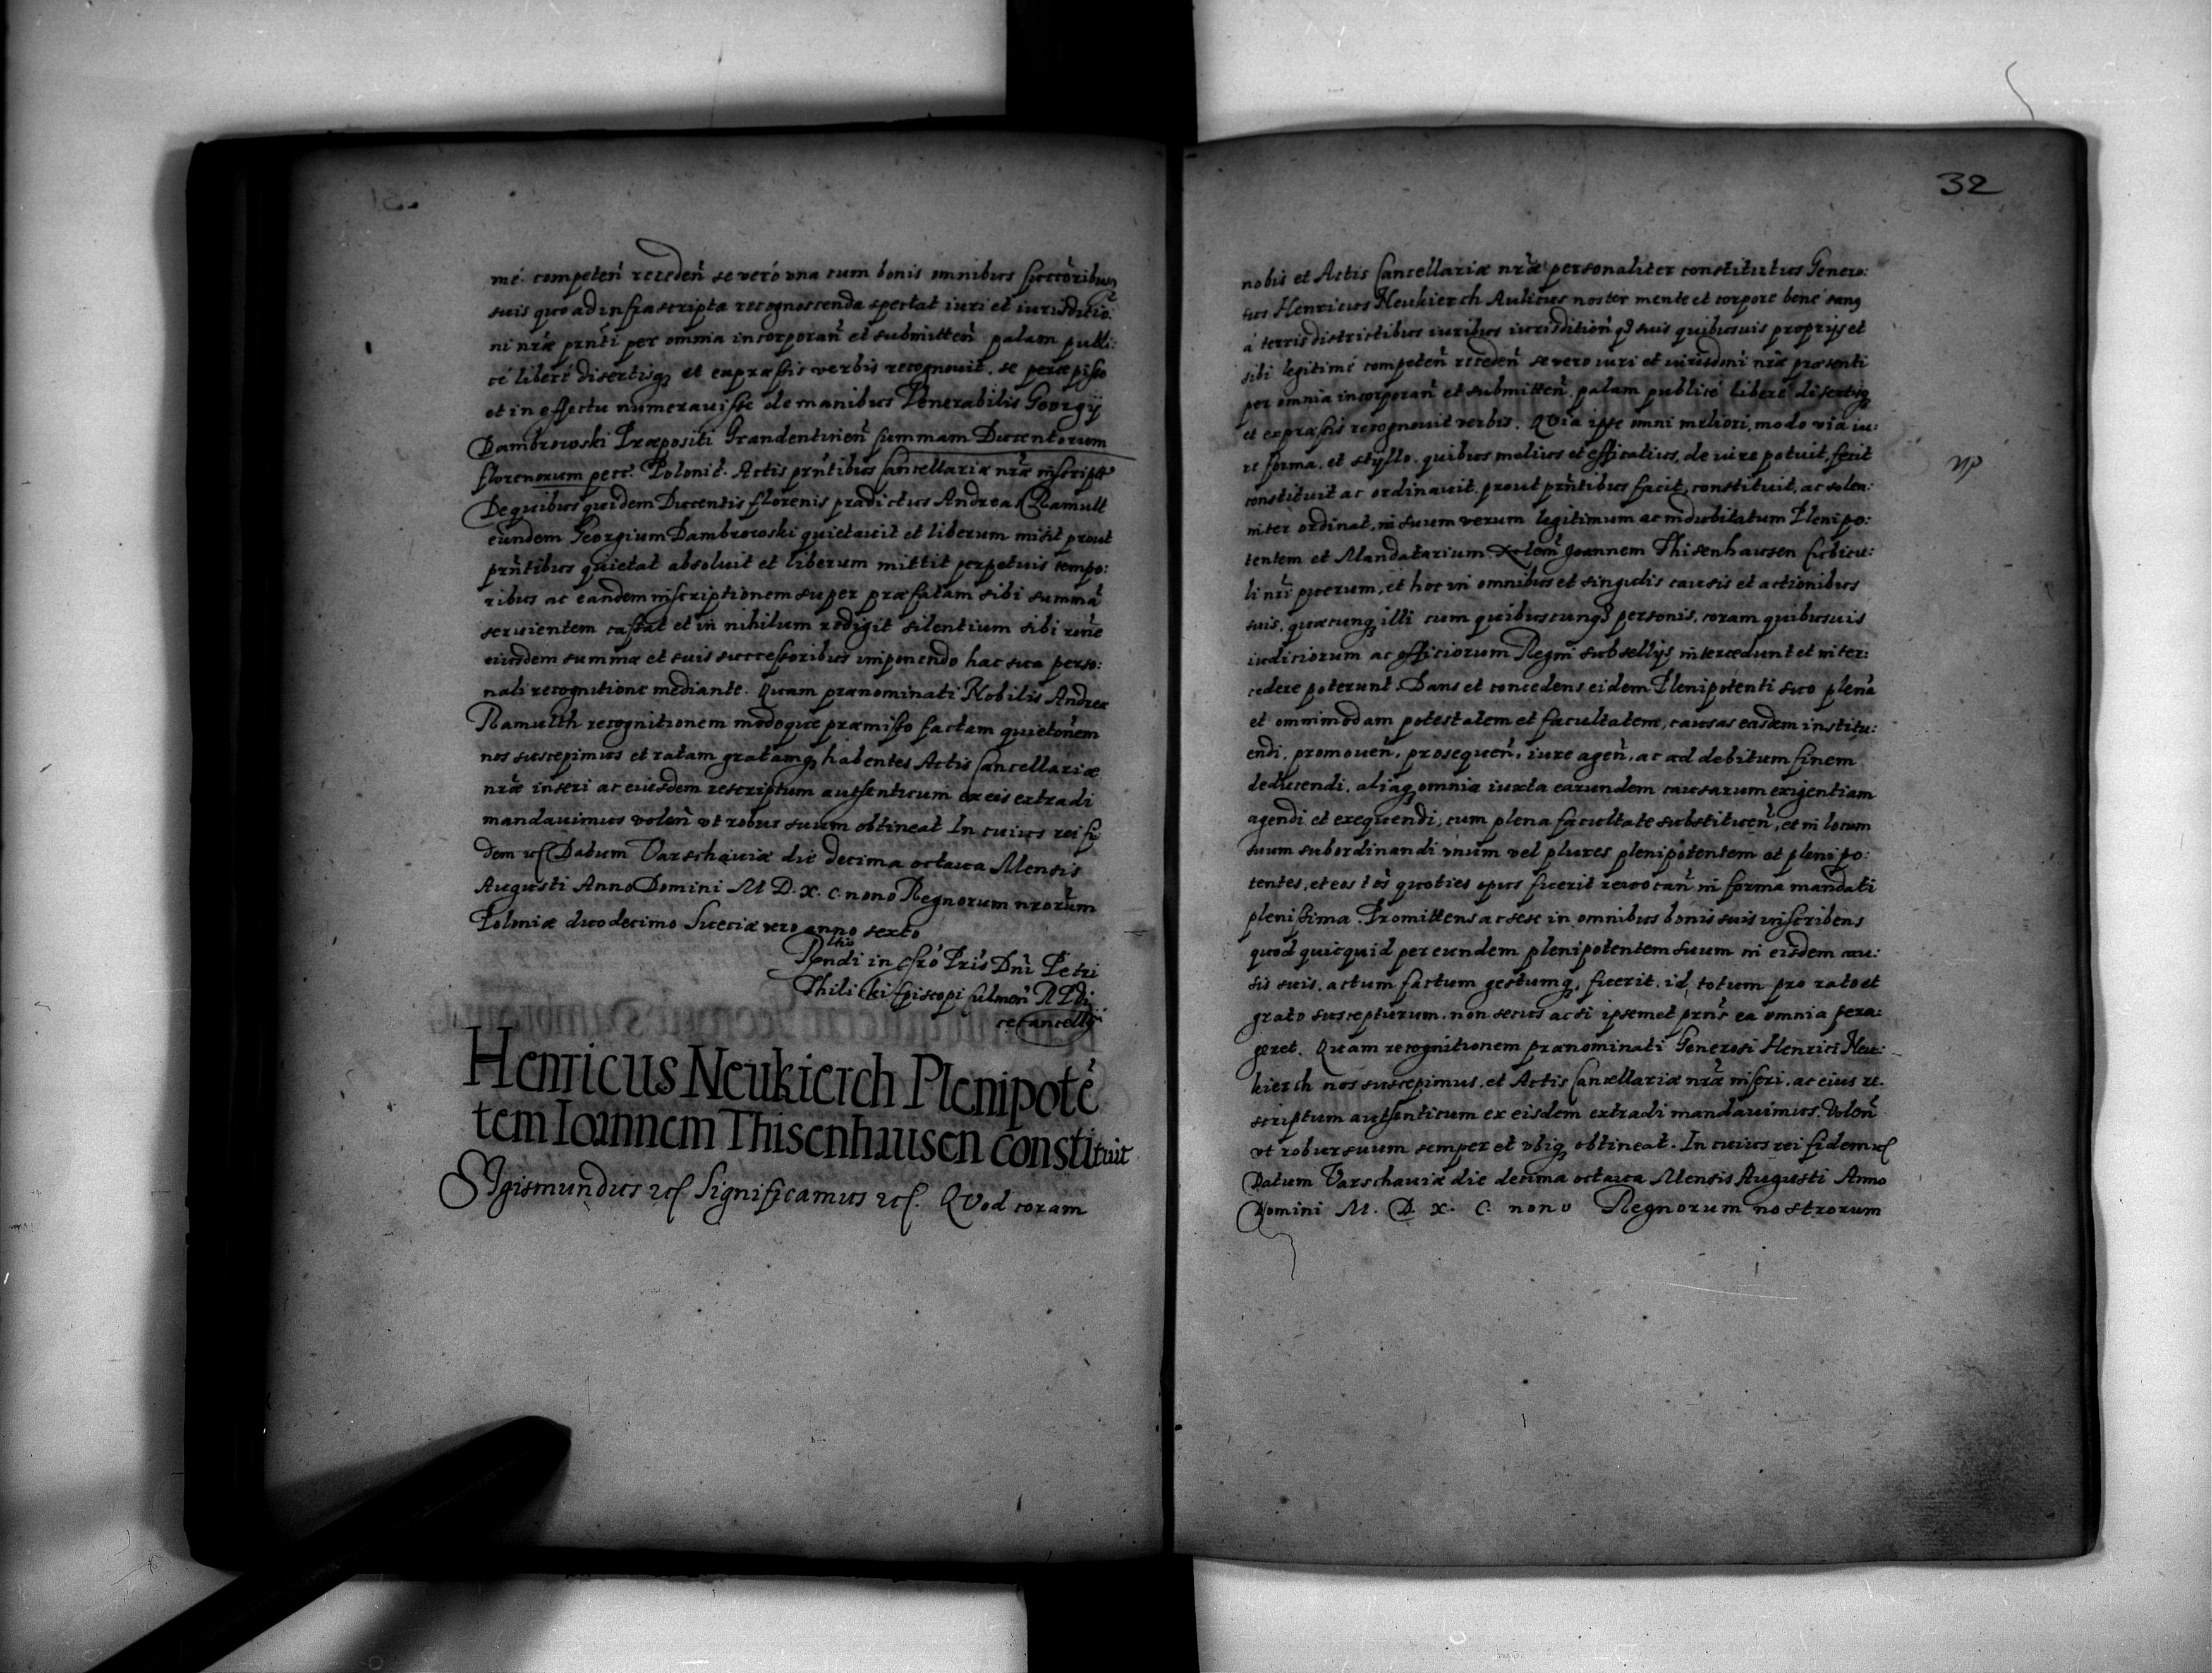 mé. competeñ recedeñ se veró vna cum bonis omnibus succoribus
suis quo ad infrascripta recognoscenda spectat iuri et iurisditio:
ni nrae prnti per omnia incorporañ et submitteñ palam publi:
cé liberé disertisq et expraessis verbis recognouit. se percepisse
et in effectu numerauisse de manibus Venerabilis Georgij
Dambrowski Praepositi Grandentineñ summam Ducentorum
florenorum pecc. Polonic. Actis prntibus Cancellariae nrae inscript
De quibus quidem Ducentis florenis pradictus Andreas Ramult
eundem Georgium Dambrowski quietauit et liberum misit prout
prntibus quietat absoluit et liberum mittit perpetuis tempo:
ribus ac eandem inscriptionem super praefatam sibi summã
seruientem cassat et in nihilum redigit silentium sibi rõne
eiusdem summae et suis successoribus imponendo hac sua perso:
nali recognitione mediante. Quam praenominati Nobilis Andreae
Ramulth recognitionem modoque praemisso factam quietoñem
nos suscepimus et ratam gratamq habentes Actis Cancellariae
nrae inseri ac eiusdem rescriptum authenticum ex eis extradi
mandauimus voleñ vt robur suum obtineat In cuius rei fi
dem etc Datum Varschauiae die decima octaua Mensis
Augusti Anno Domini M D. X. C. nono Regnorum nrorum
Poloniae duodecimo Sueciae vero anno sexto
in Chro Pris Dni Petri
Thilicki Episcopi Culmeñ R P
cecancellij
Henricus Neukierch Plenipotẽ
tem Ioannem Thisenhausen constituit
SIgismundus etc Significamus etc. QVod coram
32
nobis et Actis Cancellariae nrae personaliter constitutus Genero:
sus Henricus Neukierch Aulicus noster mente et corpore bené sanq
á terris districtibus iuribus iurisditioñ q suis quibusuis proprijs et
sibi legitimé competeñ recedeñ se vero iuri et iurisdoni nrae praesenti
per omnia incorporañ et submitteñ. palam publicé liberé disertisq
et expraessis recognouit verbis. QVia ipse omni meliori, modo via iu:
re forma. et styllo. quibus melius et efficatius, de iure potuit, fecit
constituit ac ordinauit. prout prntibus facit, constituit, ac solen:
niter ordinat, in suum verum legitimum ac indubitatum Plenipo:
tentem et Mandatarium Joannem Thisenhausen Cubicu:
li nri puerum, et hoc in omnibus et singulis causis et actionibus
suis, quaecunq illi cum quibuscunq personis, coram quibusuis
iudiciorum ac officiorum Regni subsellijs intercedunt et inter:
cedere poterunt. Dans et concedens eidem Plenipotenti suo plenã
et omnimodam potestatem et facultatem, causas easdem institu:
endi, promoueñ, prosequeñ, iure ageñ, ac ad debitum finem
deducendi, aliaq omnia iuxta earundem causarum exigentiam
agendi et exequendi, cum plena facultate substitueñ, et in locum
suum subordinandi vnum vel plures plenipotentem et plenipo:
tentes, et eos tos quoties opus fuerit reuocañ in forma mandati
plenissima. Promittens ac sese in omnibus bonis suis inscribens
quod quicquid per eundem plenipotentem suum in eisdem cau:
sis suis, actum factum gestumq, fuerit, id, totum pro rato et
grato suscepturum, non secus ac si ipsemet prns ea omnia pera:
geret. Quam recognitionem praenominati Generosi Henrici Neu:
kierch nos suscepimus. et Actis Cancellariae nrae inseri. ac eius re.
scriptum authenticum ex eisdem extradi mandauimus. Voleñ
vt robur suum semper et vbiq obtineat. In cuius rei fidem etc
Datum Varschauiae die decima octaua Mensis Augusti Anno
Domini M. D. X. C. nono Regnorum nostrorum